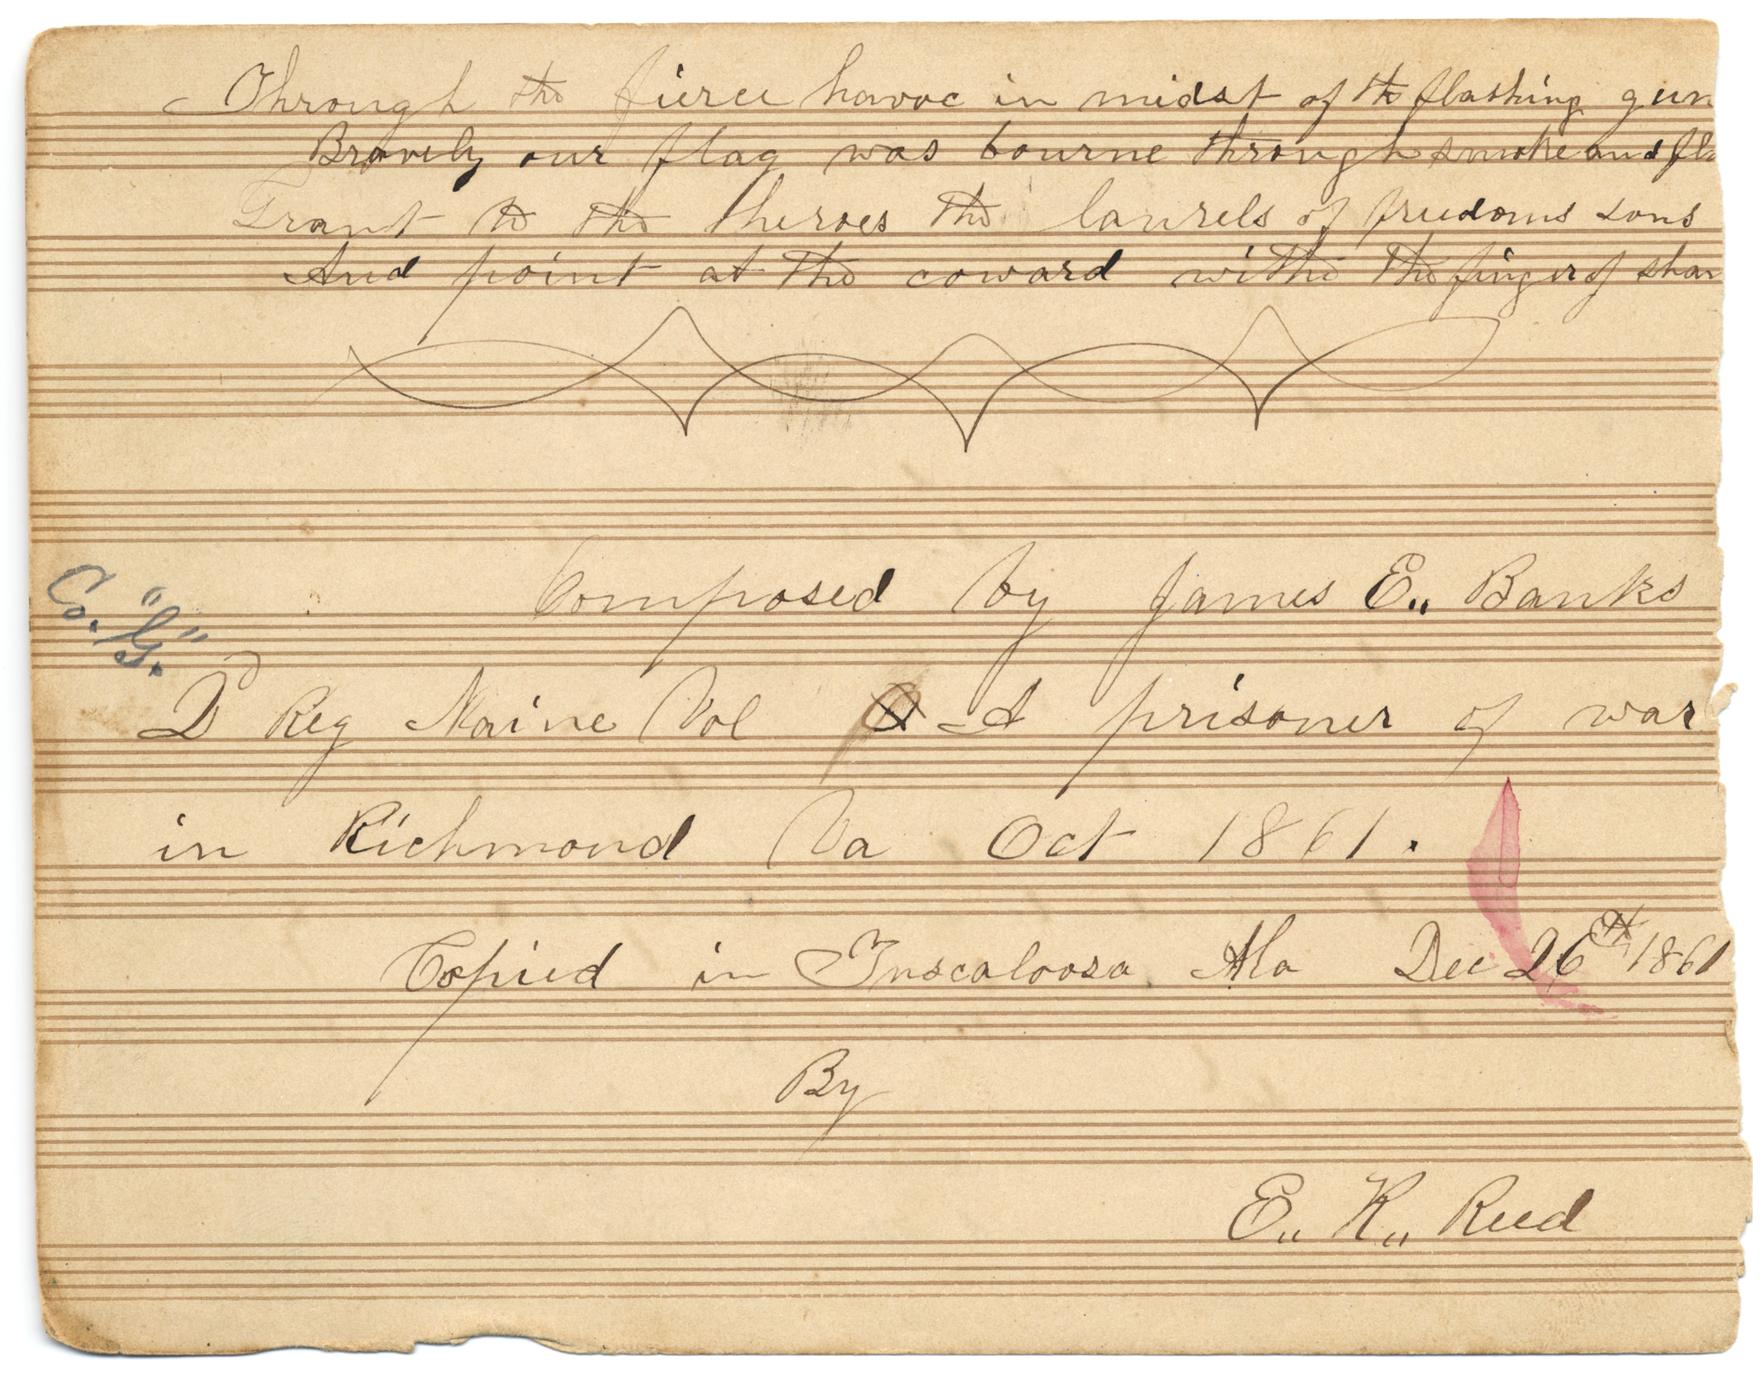 Through the fierce havoc in midst of the flashing gun
Bravely our flag was bourne through smoke and fla
Grant to the heroes the laurels of freedoms sons
And point at the coward withe the finger of sham
Composed by James E,, Banks
Co. "G".
2d Reg Maine Vol A prisoner of war
in Richmond Va Oct 1861.
Copied in Tuscaloosa Ala Dec 26th 1861
By
E,, K,, Reed